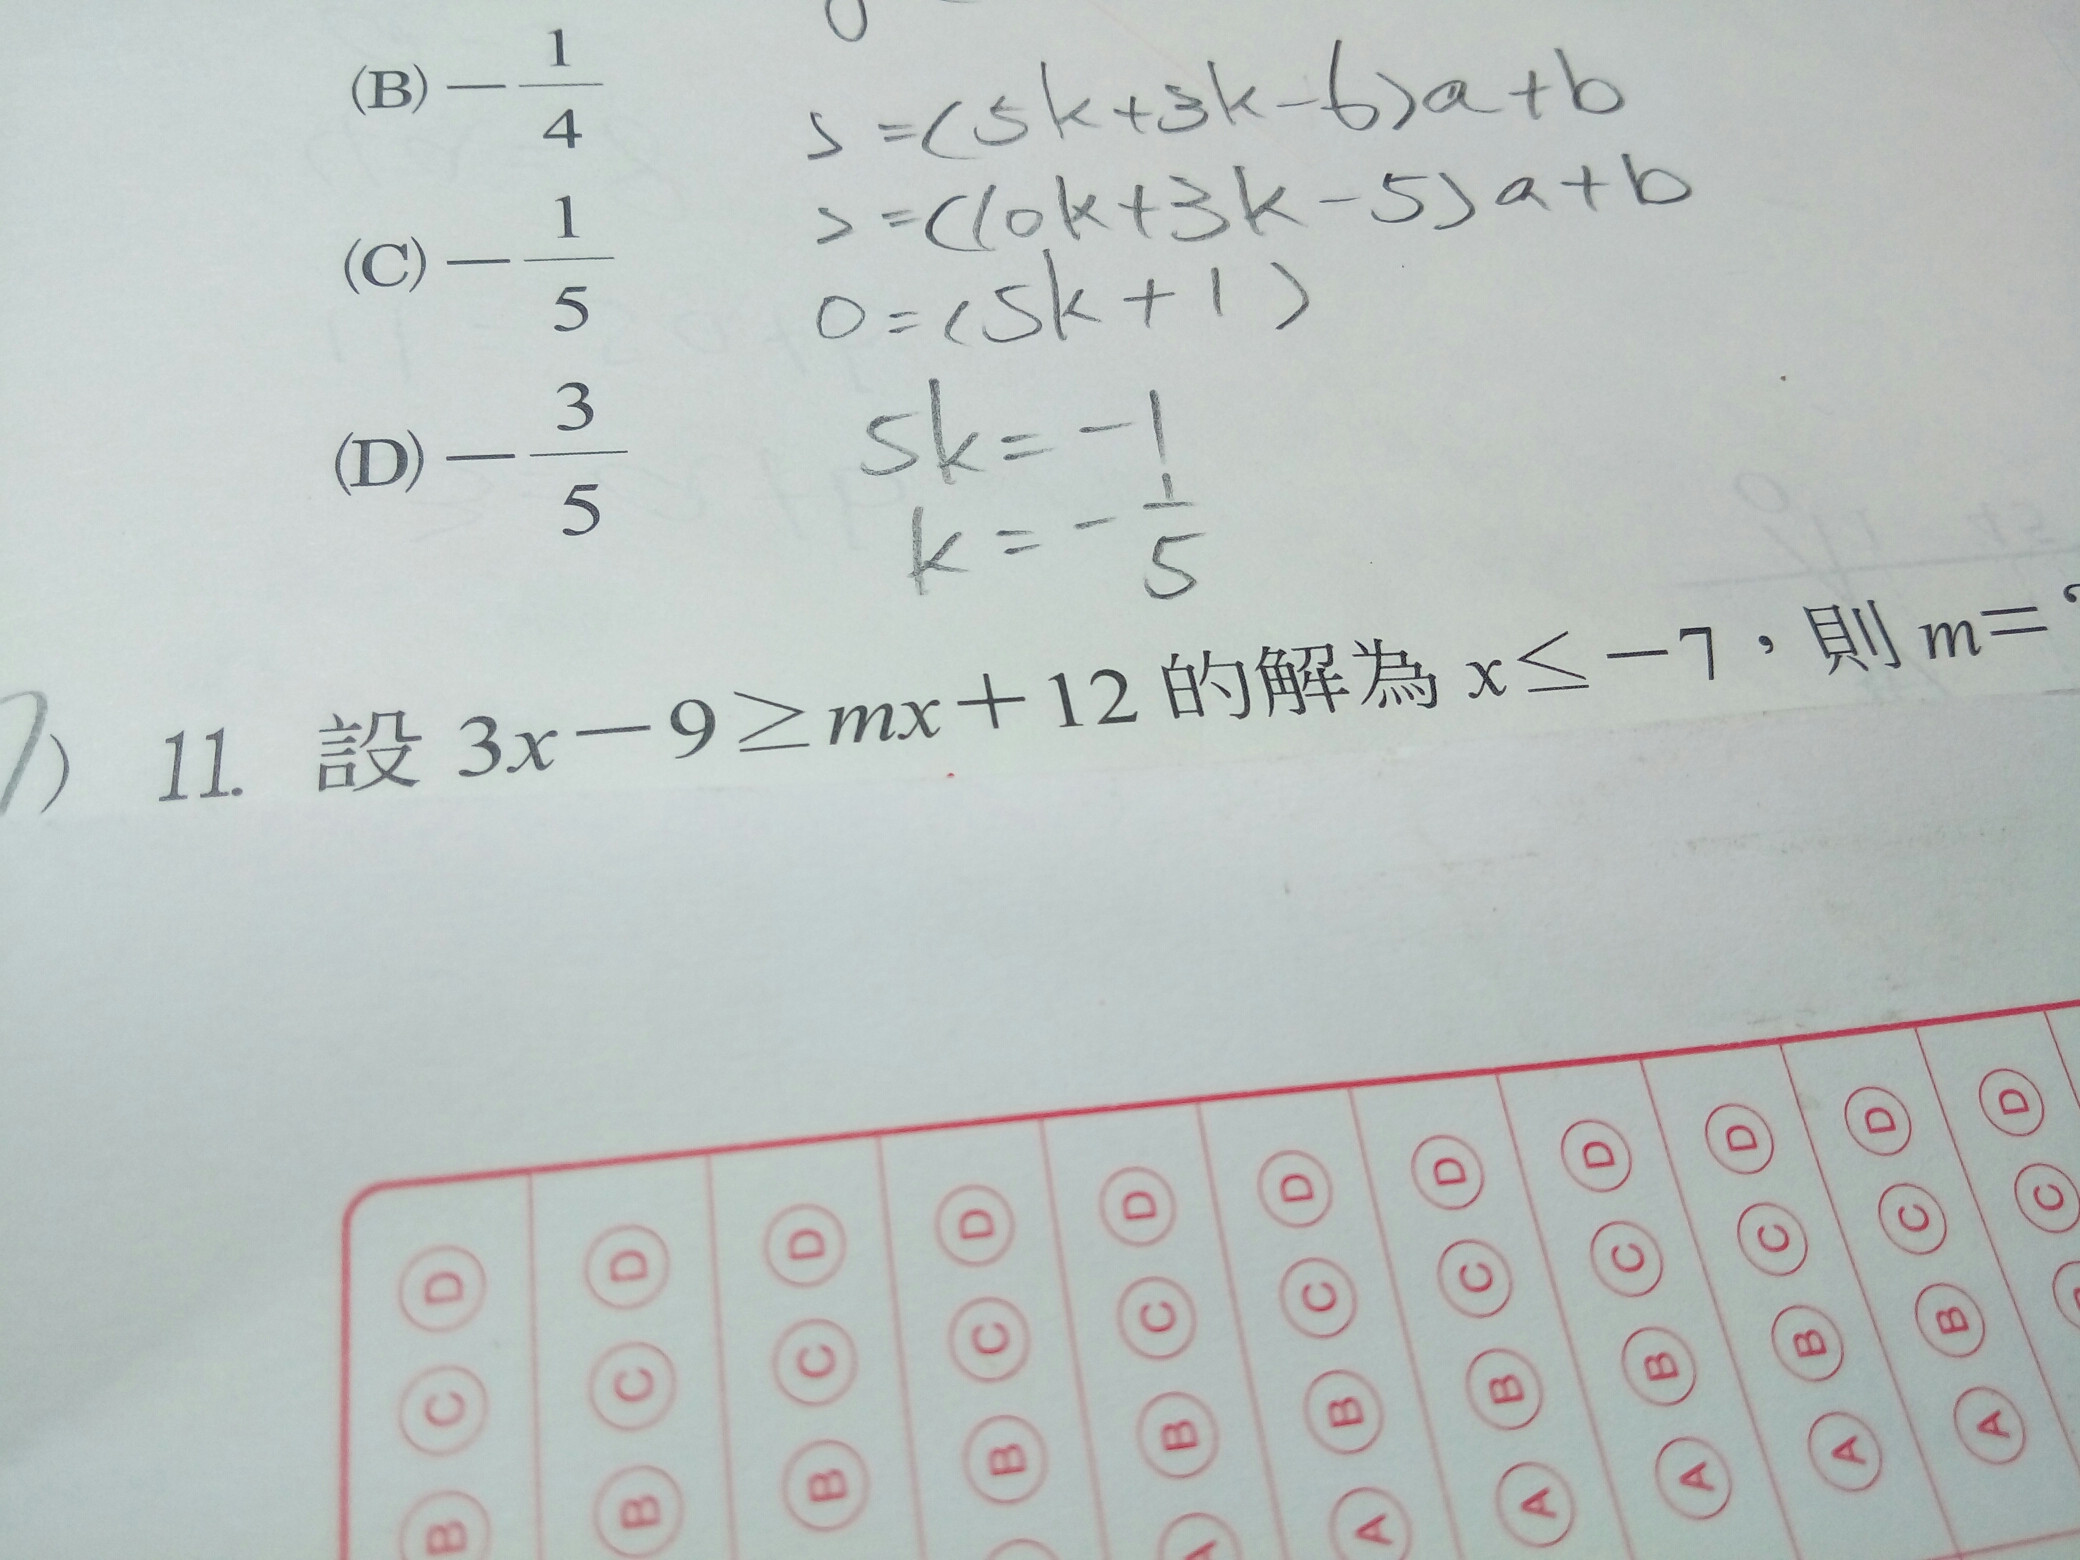 (B) －1/4
5=(5k+3k-6)a+b
5=(10k+3k-5)a+b
(C) －1/5
0=(5k+1)
(D) －3/5
5k=-1
k=-1/5
) 11. 設 3x－9≥mx＋12 的解為 x≤－7，則 m＝?
D D D D D D D D D D
C C C C C C C C C C
B B B B B B B B B
A A A A A A